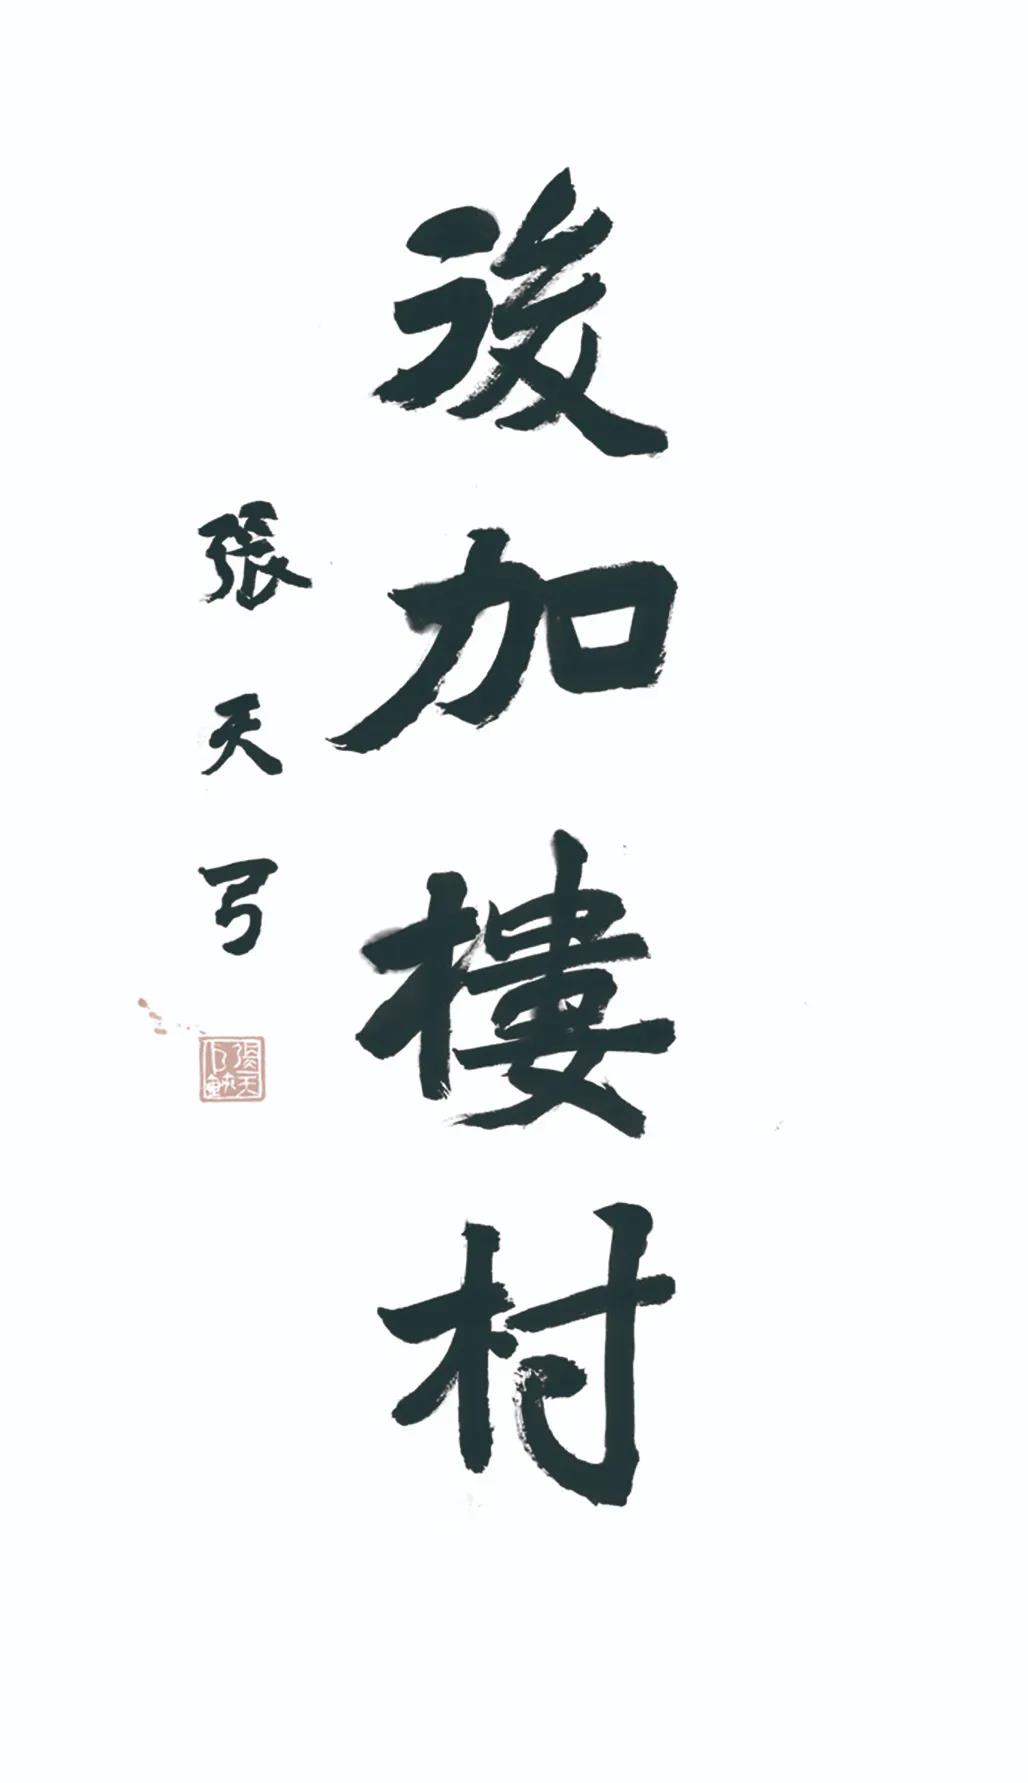 後加樓村
張天弓